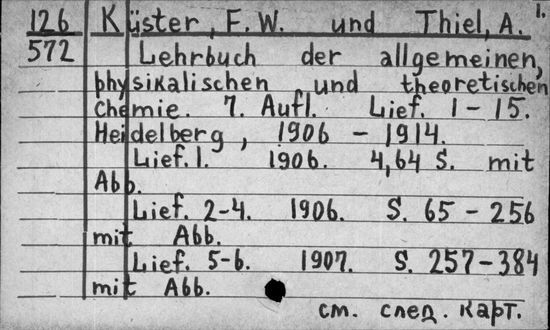 126 Küster, F. W. und Thiel, A. 1.
572 Lehrbuch der allgemeinen,
physikalischen und theoretischen
Chemie. 7. Aufl. Lief. 1-15.
Heidelberg, 1906 - 1914.
Lief. 1. 1906. 4,64 S. mit
Abb.
Lief. 2-4. 1906. S. 65 - 256
mit Abb.
Lief. 5-6. 1907. S. 257-384
mit Abb.
см. след. карт.